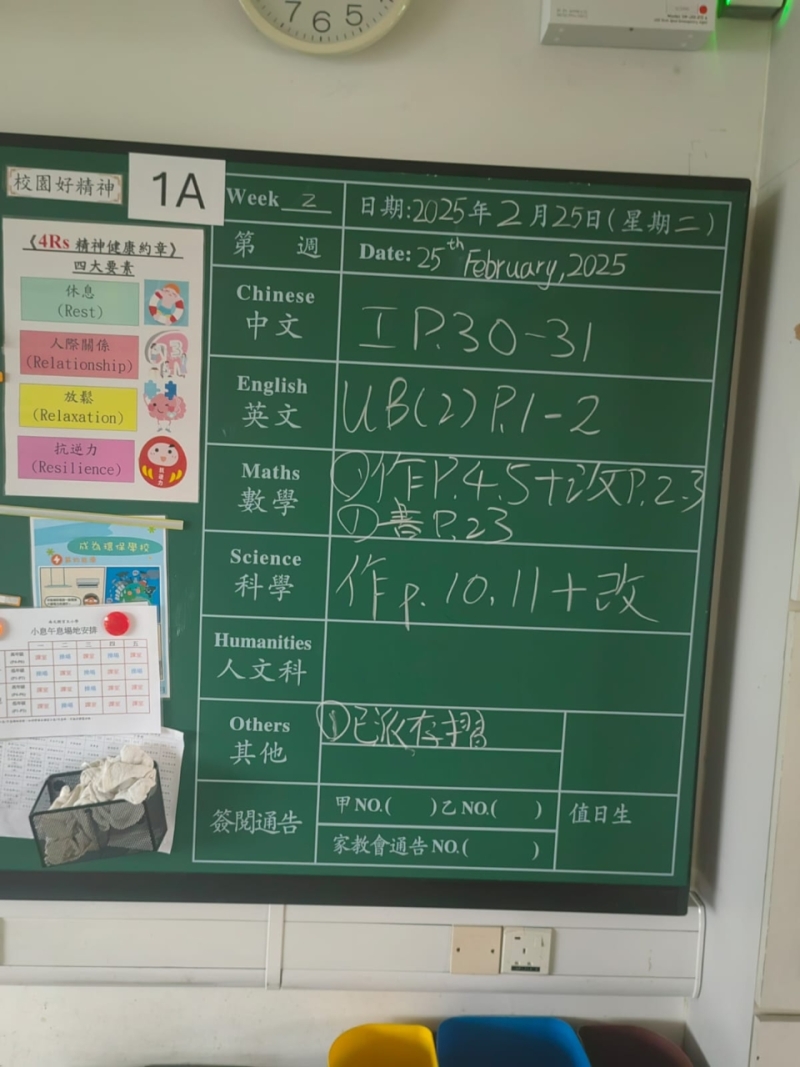 7 6 5
校園好精神
1A
《4Rs 精神健康約章》
四大要素
休息
(Rest)
人際關係
(Relationship)
放鬆
(Relaxation)
抗逆力
(Resilience)
成為環保學校
小息午息場地安排
一 二 三 四 五
Week 2
第 週
日期:2025年2月25日(星期二)
Date: 25th February, 2025
Chinese
中文
工 P.30-31
English
英文
UB(2) P.1-2
Maths
數學
作P.4.5+改P.2.3
書P.23
Science
科學
作p.10.11+改
Humanities
人文科
Others
其他
①已派存摺
簽閱通告
甲NO.( )乙NO.( )
家教會通告NO.( )
值日生